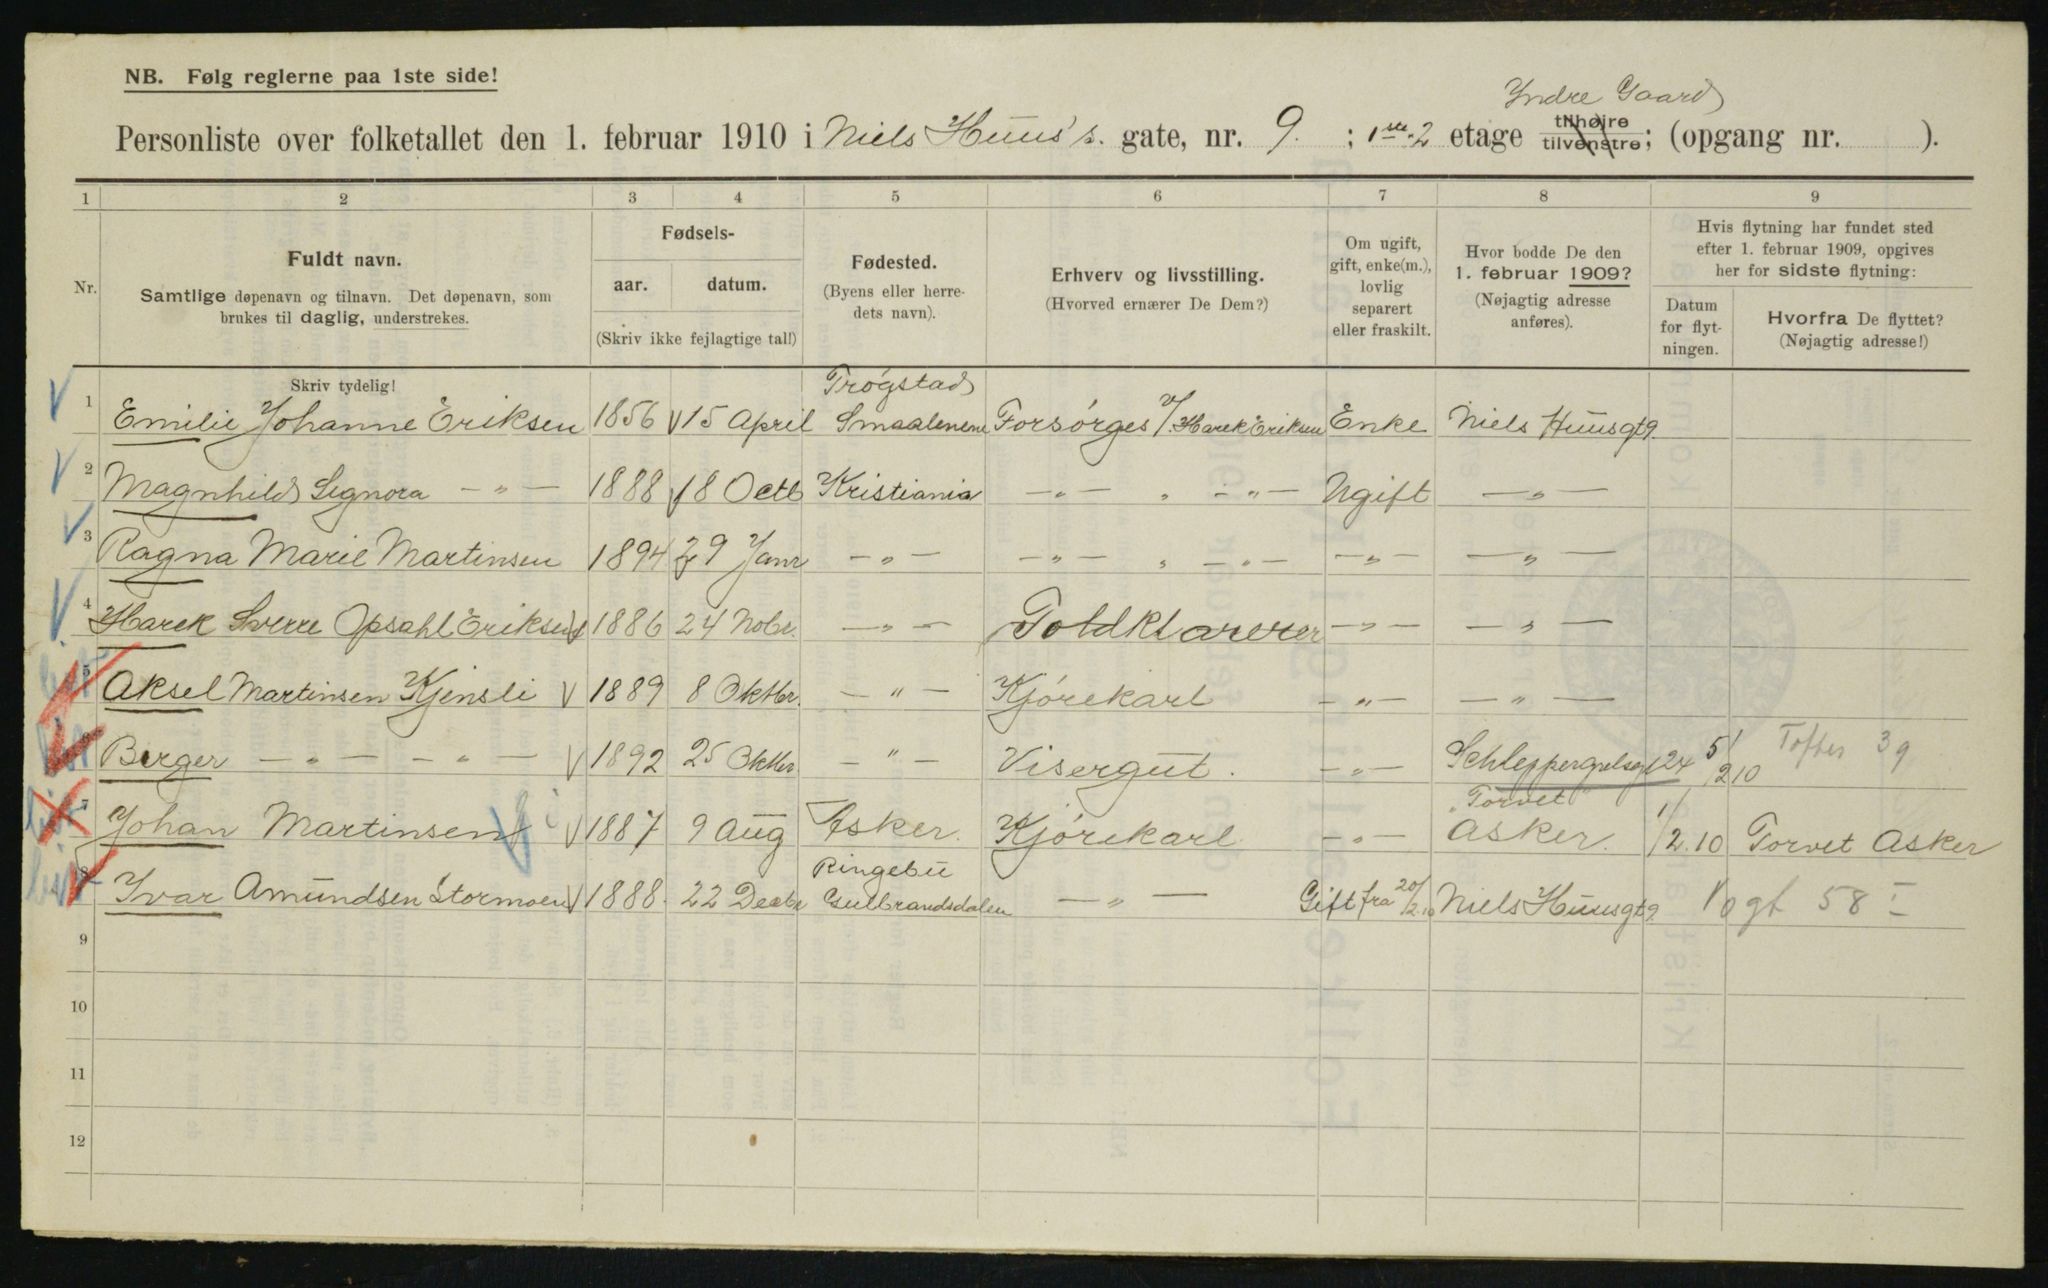 NB. Følg reglerne paa 1ste side!
Yndre Gaard
Personliste over folketallet den 1. februar 1910 i Niels Huus's. gate, nr. 9. ; 1ste 2 etage tilhøjre tilvenstre; (opgang nr. ).
1 2 3 4 5 6 7 8 9
Nr.
Fuldt navn.
Samtlige døpenavn og tilnavn. Det døpenavn, som
brukes til daglig, understrekes.
Fødsels-
aar. datum.
(Skriv ikke fejlagtige tal!)
Fødested.
(Byens eller herre-
dets navn).
Erhverv og livsstilling.
(Hvorved ernærer De Dem?)
Om ugift,
gift, enke(m.),
lovlig
separert
eller fraskilt.
Hvor bodde De den
1. februar 1909?
(Nøjagtig adresse
anføres).
Hvis flytning har fundet sted
efter 1. februar 1909, opgives
her for sidste flytning:
Datum
for flyt-
ningen.
Hvorfra De flyttet?
(Nøjagtig adresse!)
Skriv tydelig!
Trøgstad
1 Emilie Johanne Eriksen 1856 15 April Smaalenene Forsørges v/. Harek Eriksen Enke Niels Huusgt 9.
2 Magnhild Signora — " — 1888 18 Octb Kristiania — " — " — " — Ugift — " —
3 Ragna Marie Martinsen 1894 29 Janr — " — — " — " — " — — " — — " —
4 Harek Sverre Opsahl Eriksen 1886 24 Nobr. — " — Toldklarerer — " — — " —
5 Aksel Martinsen Kjensli 1889 8 Oktbr. — " — Kjørekarl — " — — " —
6 Birger — " — — " — 1892 25 Oktbr — " — Visergut. — " — Schleppergrelsegt 24 5/2 10 Toftes 39
"Torvet"
7 Johan Martinsen 1887 9 Aug Asker. Kjørekarl — " — Asker. 1/2.10 Torvet Asker
Ringebu
8 Yvar Amundsen Stormoen 1888. 22 Decbr Gulbrandsdalen — " — Gift fra 20/2.10 Niels Huusgt 9. Vogt 58 I
9
10
11
12